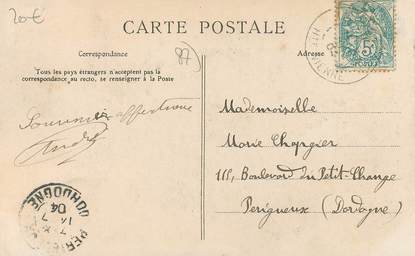 20€
CARTE POSTALE
87
Correspondance
Adresse
Tous les pays étrangers n'acceptent pas la
correspondance au recto, se renseigner à la Poste
VIENNE
5
Souvenir affectueux
André
Mademoiselle
Marie Chapgier
111, Boulevard du Petit-Change
Perigueux (Dordogne)
DORDOGNE
04